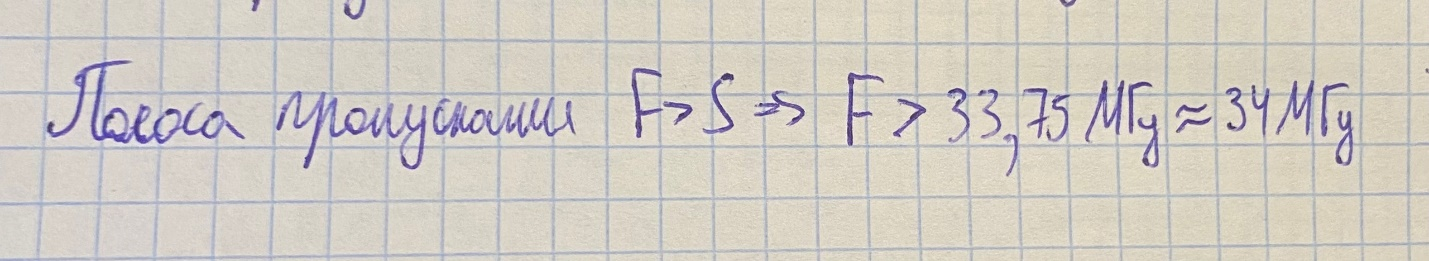 Полоса пропускания F > S => F > 33,75 МГц ≈ 34 МГц